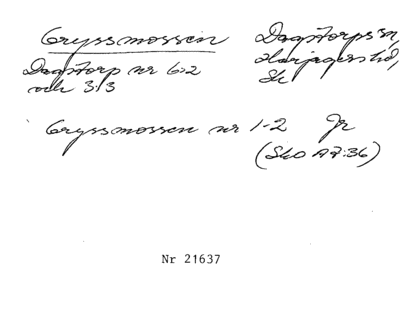 Gryssmossen Dagstorps sn,
Dagstorp nr 6:2 Harjagers hd,
och 3:3 Sk
Gryssmossen nr 1-2 Jr
(Sko A7:36)
Nr 21637